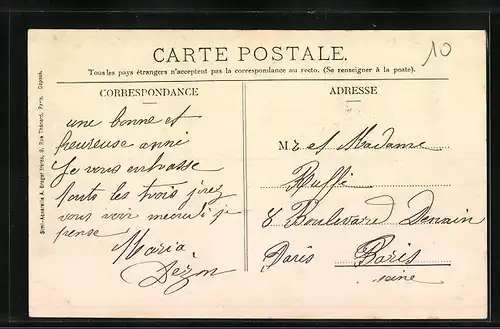 10
CARTE POSTALE.
Tous les pays étrangers n'acceptent pas la correspondance au recto. (Se renseigner à la poste).
CORRESPONDANCE
ADRESSE
une bonne et
heureuse anné
Je vous embrasse
touts les trois jirez
vous voir mecredi je
pense
Maria
Dézon
M.r et Madame
Ruffi
8 Boulevard Denain
Paris Paris
seine
Simi-Aquarelle A. Breger Frères, 9, Rue Thénard, Paris. Déposé.